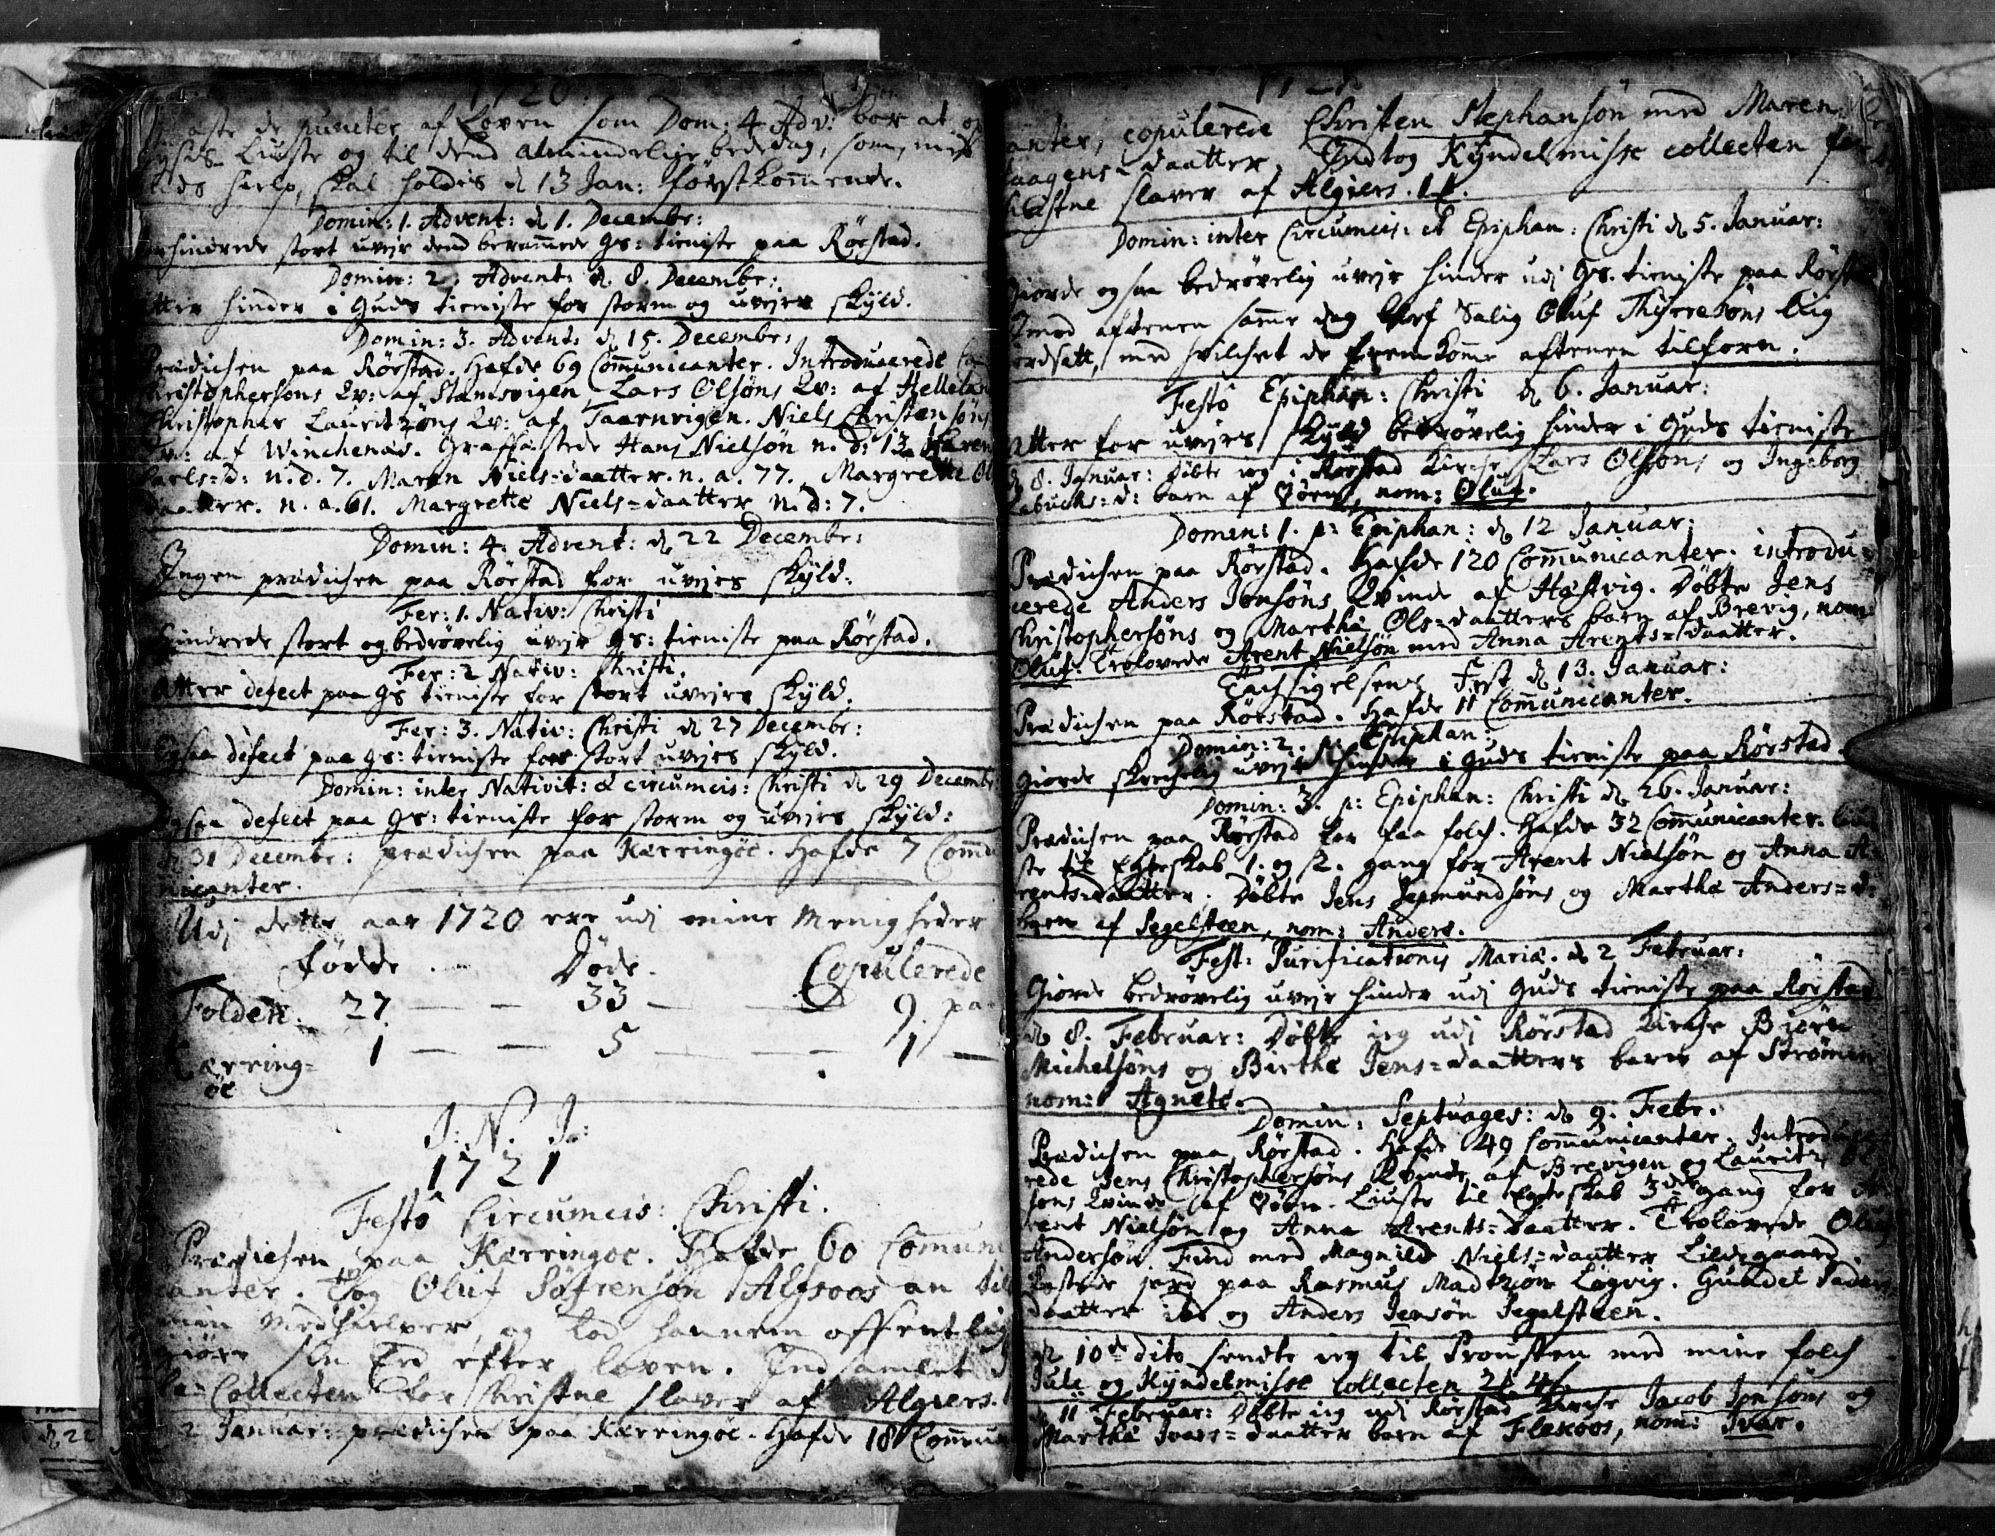 1720.
aste de puncter af Loven som Dom: 4 Adv: bør at op
lysis Liuste og til dend almindelige bededag, som, med
hielp, skal holdis d 13 Jan: førstkommende.
Domin: 1. Advent: d 1. Decembr:
forhindrede stort uveir dend berammede gs: tieniste paa Rørstad.
Domin: 2. Advent: d 8. Decembr:
Atter hinder i Guds tieniste for storm og uveirs skyld.
Domin: 3. Advent: d 15. Decembr:
Prædichen paa Rørstad. Hafde 69 Communicanter. Introducerede
Christophersøns Qv: af Stamsvigen, Lars Olsøns Qv: af Helleland
Christopher Lauritzøns Qv: af Taarnvigen. Niels Christensøns
Qv: af Winchenæs. Graffæstede Hans Nielsøn n. d: 13. Karen
Carls=D: n. d. 7. Maren Niels=daatter. n. a. 77. Margrette Ols
daatter. n. a. 61. Margrette Niels=daatter n. d: 7.
Domin: 4. Advent: d 22 Decembr:
Ingen prædichen paa Rørstad for uveirs skyld.
Fer: 1. Nativ: Christi
hindrede stort og bedrøvelig uveir gs: tieniste paa Rørstad.
Fer: 2 Nativ: Christi.
Atter defect paa gs tieniste for stort uveirs skyld.
Fer: 3. Nativ: Christi d 27 Decembr:
Ogsaa defect paa gs: tieniste for stort uveirs skyld.
Domin: inter Nativit: & circumcis: Christi d 29 Decembr:
Ogsaa defect paa gs: tieniste for storm og uveirs skyld:
d 31 Decembr: prædichen paa Kærringøe. Hafde 7 Commu
nicanter.
Udj dette aar 1720 ere udj mine Menigheder
Fødde. Døde. Copulerede
Folden. 27 — — 33 — — 9. par
Kærring= 1 — — 5 — — 1 —
øe
J: N. J:
1721
Festô Circumcis: Christi.
Prædichen paa Kærringøe. Hafde 60 Communi
canter. Tog Oluf Søfrensøn Alfsoos an til
min Medhielper, og lod hannem offentlig
giøre sin Eed efter loven. Indsamlet
Collecten for Christne slaver af Algiers.
2 Januar: prædichen paa Kærringøe. Hafde 18 Commu
1721.
canter, copulerede Christen Stephansøn med Maren
Haagens=daatter, Indtog Kyndelmisse collecten for
Christne slaver af Algiers.
Domin: inter Circumcis: et Epiphan: Christi d 5. Januar:
Giorde ogsaa bedrøvelig uveir hinder udj gs. tieniste paa Rørstad
Imod aftenen samme dag blef Salig Oluf Thyrresøns Liig
iordsatt, med hvilchet de fremkomme aftenen tilforn.
Festô Epiphan: Christi d 6. Januar:
Atter for uveirs skyld bedrøvelig hinder i Guds tieniste
d 8. Januar: døbte ieg i Rørstad Kirche Lars Olsøns og Ingeborg
Jabuchs=d: barn af nom: Oluf.
Domin: 1. p: Epiphan: d 12 Januar:
Prædichen paa Rørstad. Hafde 120 Communicanter. introdu=
cerede Anders Jonsøns Qvinde af Høstvig. Døbte Jens
Christophersøns og Martha Ols=daatters barn af Brevig, nom:
Oluf. Trolovede Arent Nielsøn med Anna Arents=daatter.
Tachsigelsens Fest d 13. Januar:
Prædichen paa Rørstad. Hafde 11 Communicanter.
Domin: 2. p: Epiphan:
Giorde skrechelig uveir hinder i Guds tieniste paa Rørstad.
Domin: 3. p: Epiphan: Christi d 26. Januar:
Prædichen paa Rørstad for faa folch. Hafde 32 Communicanter. Liu
ste til Egteskab 1. og 2. gang for Arent Nielsøn og Anna A=
rents=daatter. Døbte Jens Segmundsøns og Martha Anders=d:
barn af Segelsteen, nom: Anders.
Fest: Purificationis Mariæ. d 2 Februar:
Giorde bedrøvelig uveir hinder udj Guds tieniste paa Rørstad.
d 8. Februar: Døbte ieg udj Rørstad Kirche Biørn
Michelsøns og Birthe Jens=daatters barn af Strømen
nom: Agnete.
Domin: Septuages: d 9. Febr.
Prædichen paa Rørstad. Hafde 49 Communicanter. Introduce
rede Jens Christophersøns Qvinde af Brevigen og Lauritz
søns Qvinde af Liuste til Egteskab 3die gang for A
rent Nielsøn og Anna Arents=daatter. Trolovede Oluf
Andersøn Find med Magnild Niels=daatter Lildegaard.
Kastede jord paa Rasmus Madtzøn Løgvig. Gundel Peders
daatter ibd og Anders Jensøn Segelsteen.
d 10de dito sendte ieg til Prousten med mine folch
Jule og Kyndelmisse Collecten
11 Februar: Døbte ieg udj Rørstad Kirche Jacob Jonsøns og
Martha Ivars=daatter barn af Flexoos, nom: Ivar.
d 22